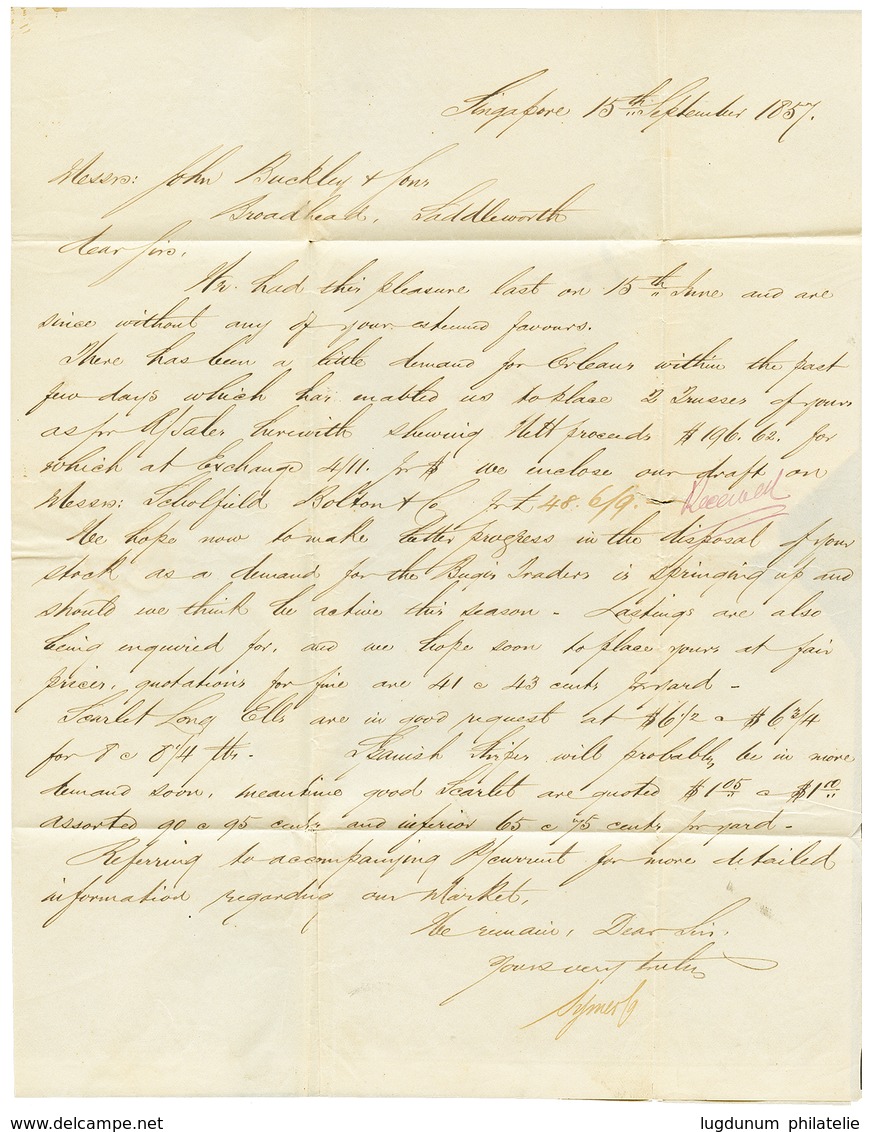 Singapore 15th September 1857.
Messrs: John Buckley & Sons
Broadhead, Saddleworth
Dear Sirs,
We had this pleasure last on 15th June and are
since without any of your esteemed favours.
There has been a little demand for Orleans within the past
few days which has enabled us to place 2 Trusses of yours
as pr A/Sales herewith shewing Nett proceeds $196.62. for
which at Exchange 4/11. pr $ we enclose our draft on
Messrs: Scholfield Bolton & Co pr £48.6/9. — Received
We hope now to make better progress in the disposal of your
stock as a demand for the Bugis Traders is springing up and
should we think be active this season - Lastings are also
being enquired for, and we hope soon to place yours at fair
prices, quotations for fine are 41 a 43 cents pr yard -
Scarlet Long Ells are in good request at $6 1/2 a $6 3/4
for 8 a 8 1/4 lbs. Spanish Stripes will probably be in more
demand soon, meantime good Scarlet are quoted $1.05 a $1.10
assorted 90 a 95 cents and inferior 65 a 75 cents pr yard -
Referring to accompanying P/Current for more detailed
information regarding our Market,
We remain, Dear Sirs,
Yours very truly
Syme & Co
www.delcampe.net
lugdunum philatelie